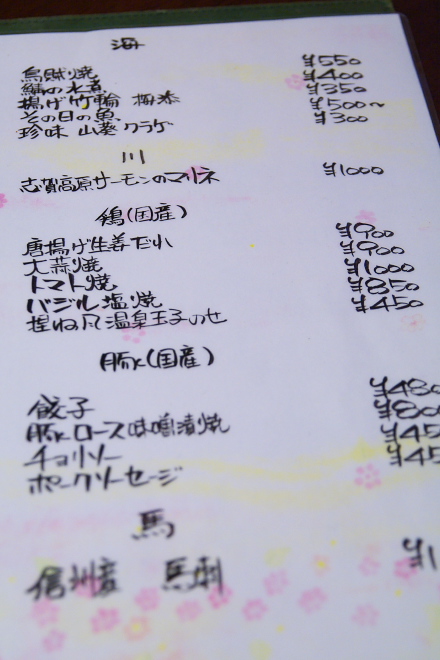 海
烏賊焼 ¥550
鯖の水煮 ¥400
揚げ竹輪 梅添 ¥350
その日の魚 ¥500〜
珍味 山葵クラゲ ¥300
川
志賀高原サーモンのマリネ ¥1000
鶏(国産)
唐揚げ生姜だれ ¥900
大蒜焼 ¥900
トマト焼 ¥1000
バジル塩焼 ¥850
捏ね 温泉玉子のせ ¥450
豚(国産)
餃子 ¥480
豚ロース味噌漬焼 ¥800
チョリソー ¥45
ポークソーセージ ¥45
馬
信州産 馬刺 ¥1